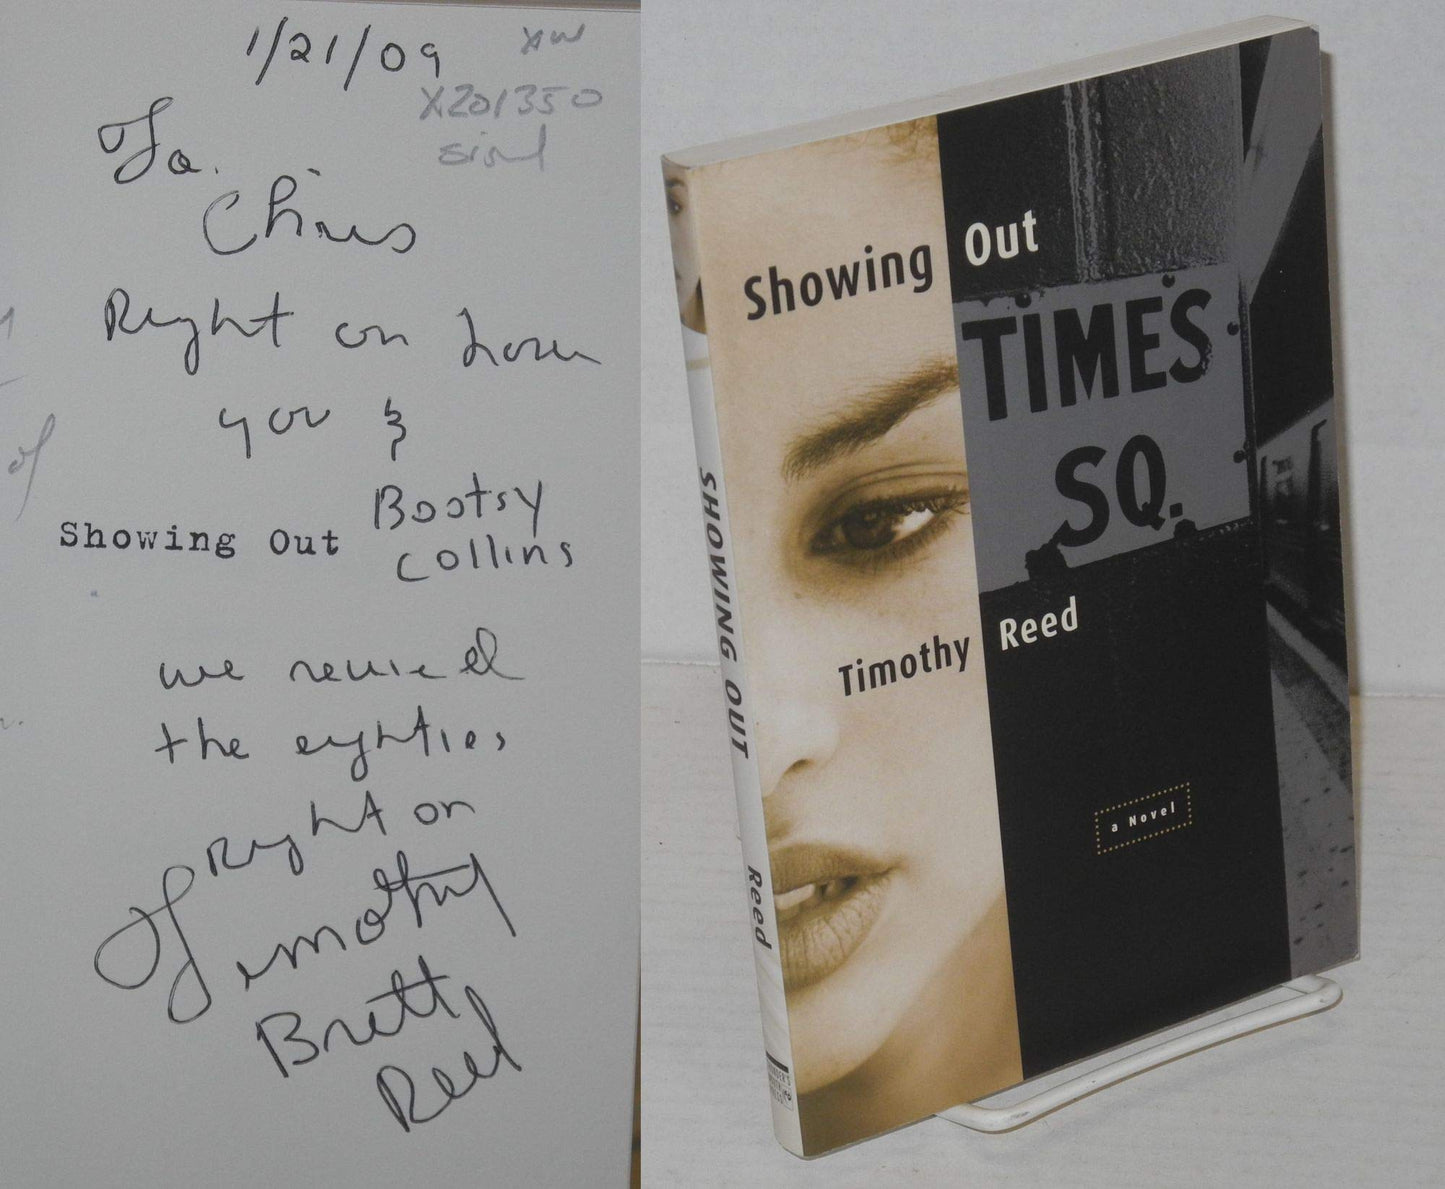 1/21/09
XW
X201350
sind
To.
Chris
Right on
you &
Bootsy
Showing Out
Collins
we
the eighties
Right on
Timothy
Brett
Reed
Showing Out
TIMES
SQ.
Timothy Reed
a Novel
SHOWING OUT
Reed